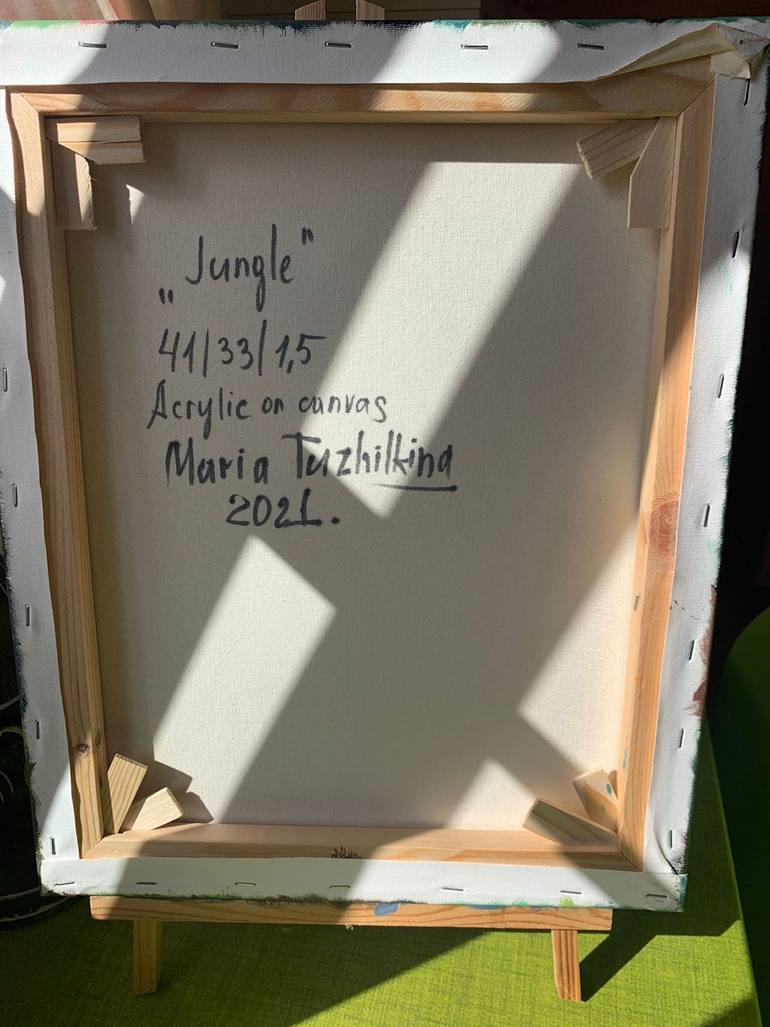 „Jungle"
41/33/1,5
Acrylic on canvas
Maria Tuzhilkina
2021.